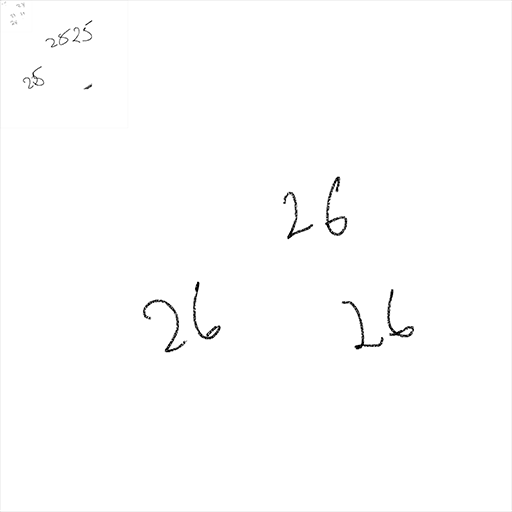 2525
25
26
26 26